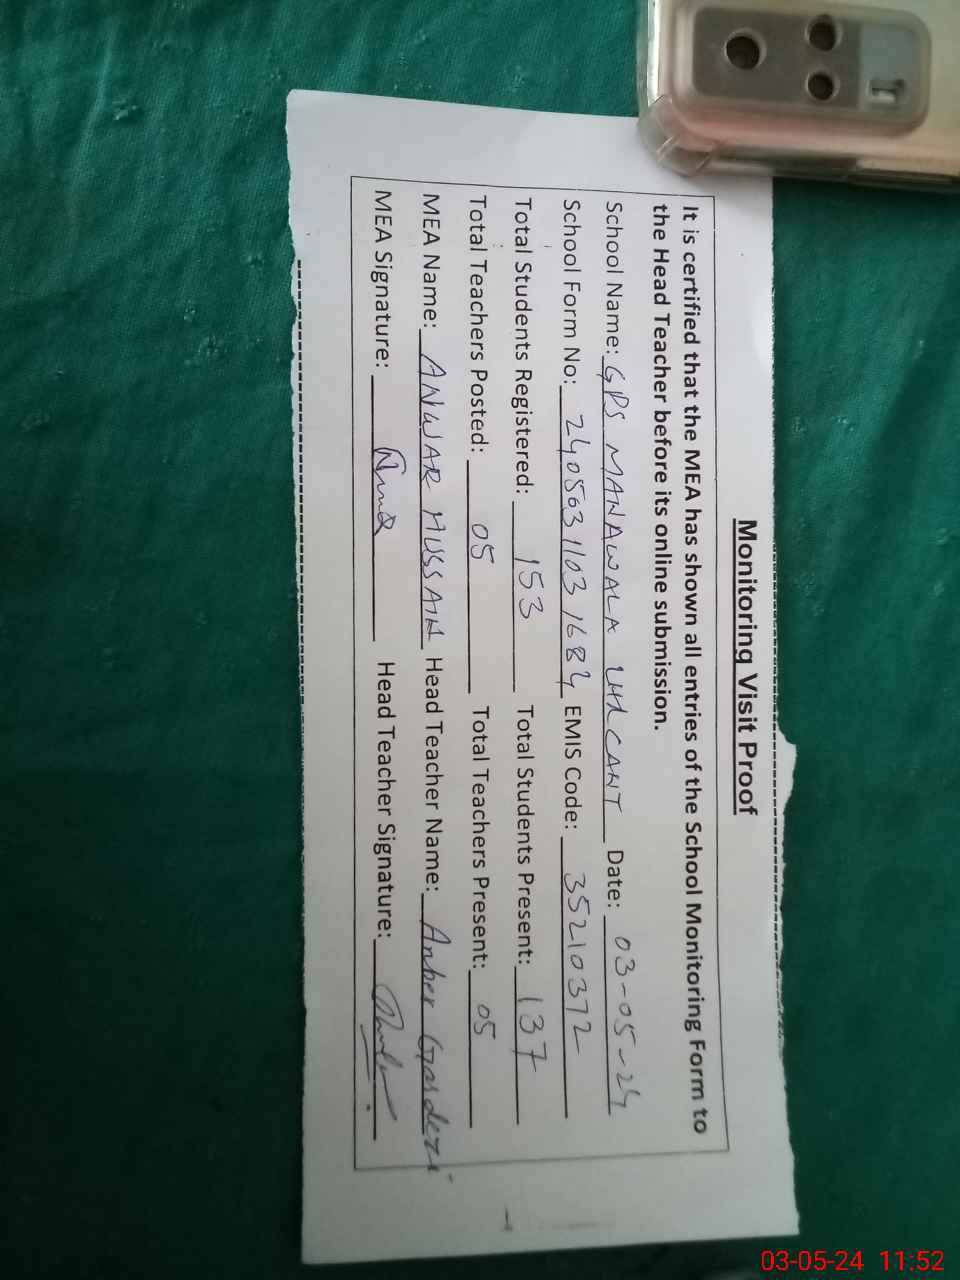 Monitoring Visit Proof
It is certified that the MEA has shown all entries of the School Monitoring Form to
the Head Teacher before its online submission.
School Name: GPS MANAWALA LHR CANT Date: 03-05-24
School Form No: 240503 1103 1684 EMIS Code: 35210372
Total Students Registered: 153 Total Students Present: 137
Total Teachers Posted: 05 Total Teachers Present: 05
MEA Name: ANWAR HUSSAIN Head Teacher Name: Anber Gardezi
MEA Signature: Head Teacher Signature:
03-05-24 11:52